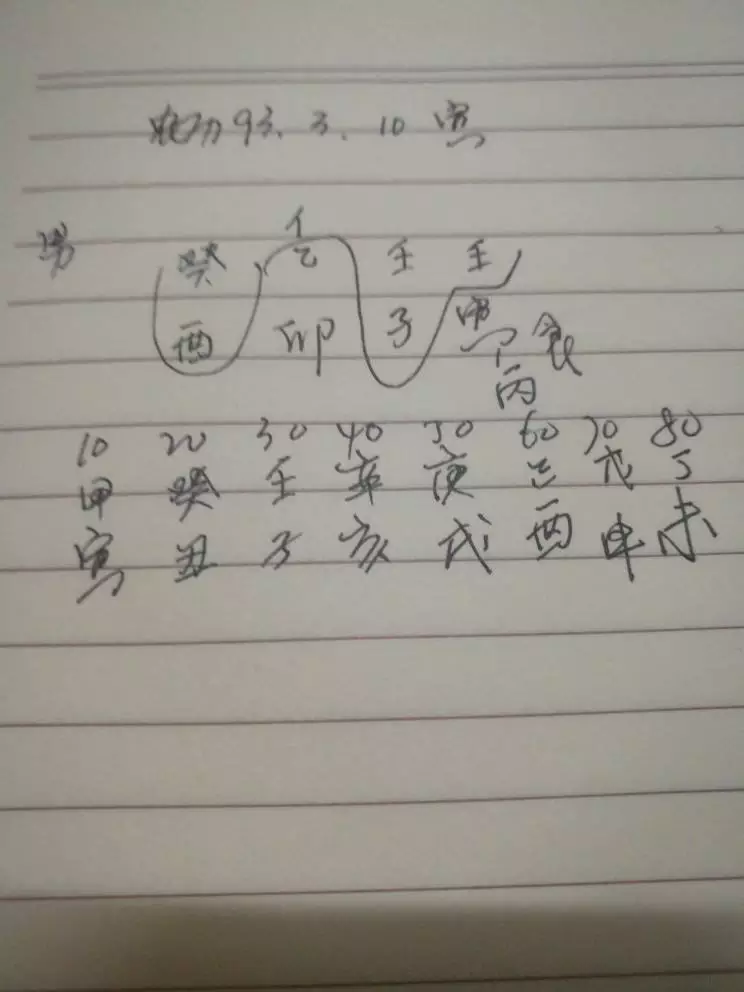 93.3.10 寅
男 癸 乙 壬 壬
酉 卯 子 寅
丙
10 20 30 40 50 60 70 80
甲 癸 壬 辛 庚 己 戊 丁
寅 丑 子 亥 戌 酉 申 未